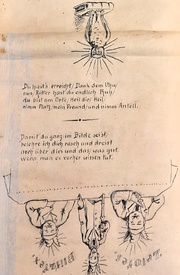 Du hast's erreicht; Dank dem Uhu,
nun, Ritter hast du endlich Ruh;
du bist am Orte, Heil dir, Heil,
nimm Platz, mein Freund, und nimm Anteil.
Damit du ganz im Bilde seist,
belehre ich dich rasch und dreist
doch über dies und das, was gut,
wenn man es vorher wissen tut.